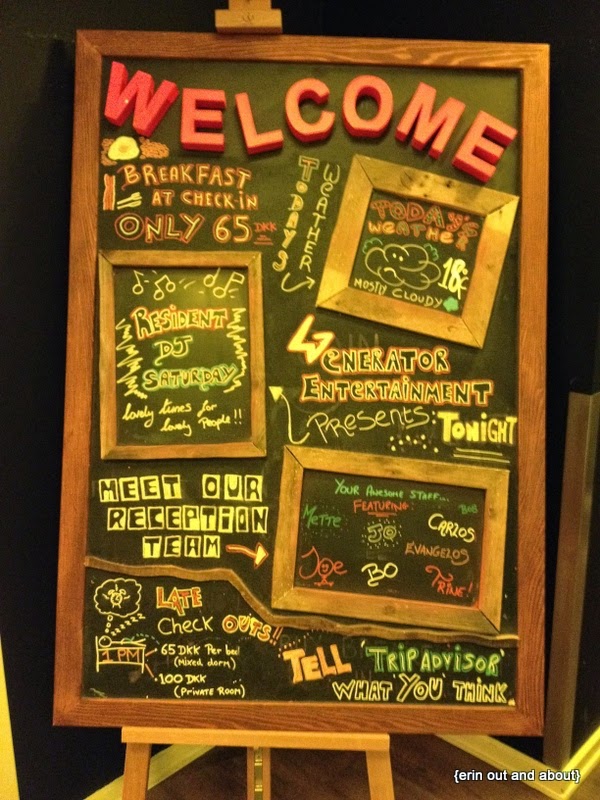 WELCOME
BREAKFAST
AT CHECK-IN
ONLY 65 DKK
TODAYS
WEATHER
TODAY'S
WEATHER
18c
MOSTLY CLOUDY
RESIDENT
DJ
SATURDAY
lovely tunes for
lovely People!!
GENERATOR
ENTERTAINMENT
PRESENTS: TONIGHT
MEET OUR
RECEPTION
TEAM
YOUR AWESOME STAFF...
FEATURING:
METTE
BOB
JO
CARLOS
EVANGELOS
Joe
BO
TRINE!
LATE
Check OUTS!!
1 PM
65 DKK Per bed
(Mixed dorm)
100 DKK
(PRIVATE ROOM)
TELL 'TRIP ADVISOR'
WHAT YOU THINK.
{erin out and about}